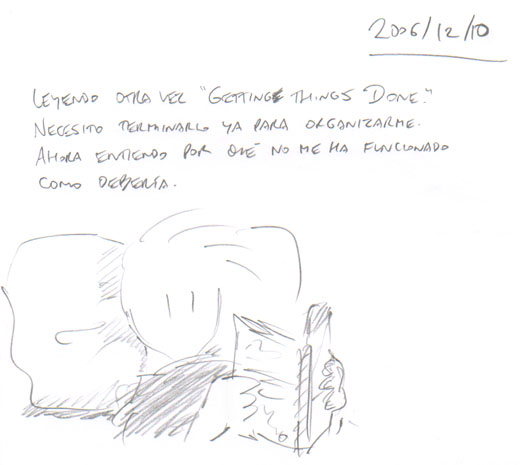 2006/12/10
LEYENDO OTRA VEZ "GETTING THINGS DONE."
NECESITO TERMINARLO YA PARA ORGANIZARME.
AHORA ENTIENDO POR QUÉ NO ME HA FUNCIONADO
COMO DEBERÍA.